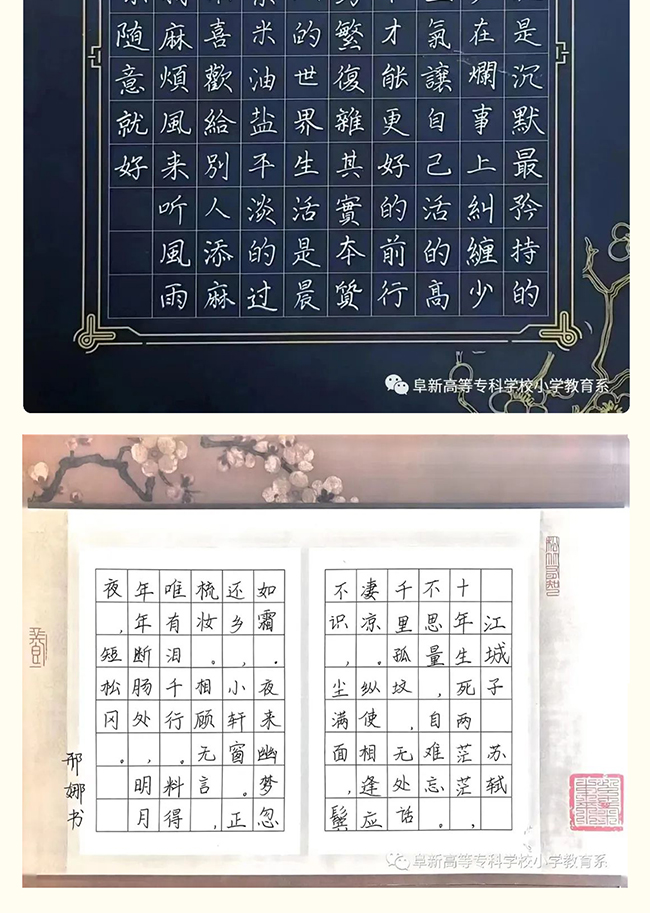 是沉默最矜持的
在爛事上糾纏少
氣讓自己活的高
才能更好的前行
繁復雜其實本質
的世界生活是晨
米油盐平淡的过
喜歡給別人添麻
麻煩風来听風雨
随意就好
阜新高等专科学校小学教育系
江城子 苏轼
十年生死两茫茫，
不思量，自难忘。
千里孤坟，无处话
凄凉。纵使相逢应
不识，尘满面，鬓
如霜．夜来幽梦忽
还乡，小轩窗。正
梳妆。相顾无言，
唯有泪千行。料得
年年断肠处，明月
夜，短松冈。
邢娜书
阜新高等专科学校小学教育系